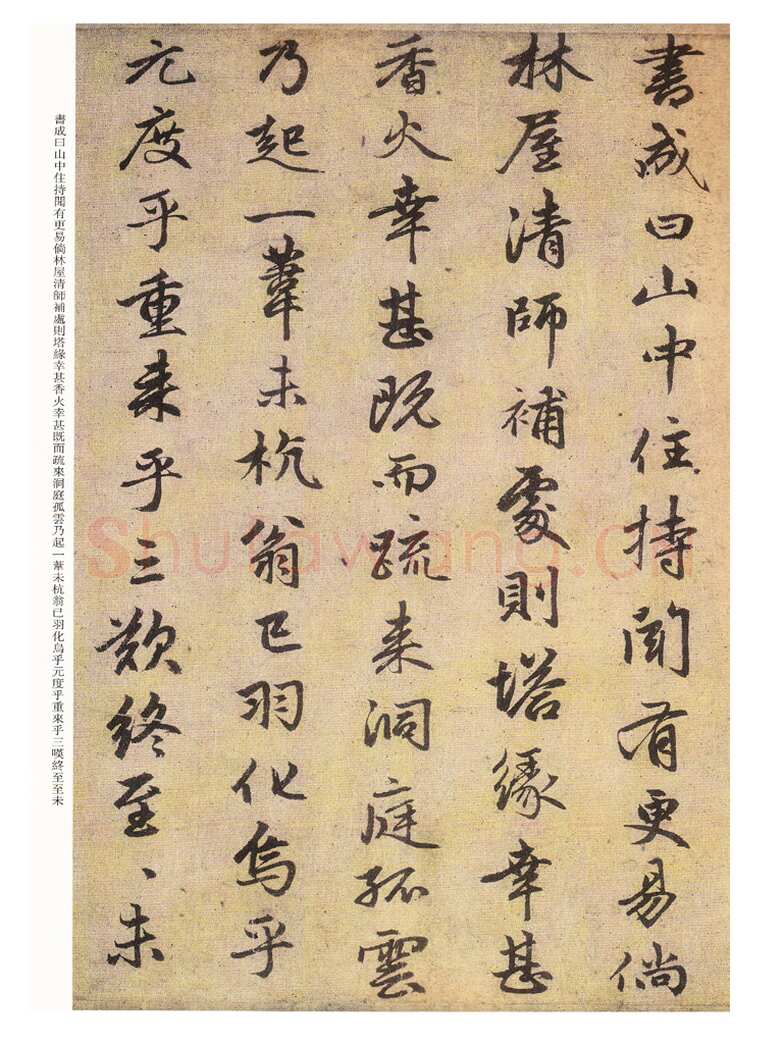 書成曰山中住持聞有更易倘
林屋清師補處則塔緣幸甚
香火幸甚既而疏来洞庭孤雲
乃起一葦未杭翁已羽化烏乎
元度乎重来乎三歎終至、未
書成曰山中住持聞有更易倘林屋清師補處則塔緣幸甚香火幸甚既而疏來洞庭孤雲乃起一葦未杭翁已羽化烏乎元度乎重來乎三嘆終至至未
Shufawang.cn